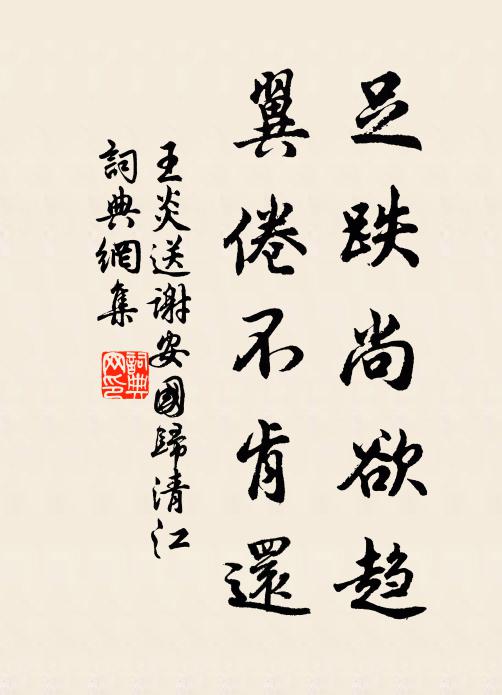 足跌尚欲趋
翼倦不肯還
王炎送謝安國歸清江
詞典網集
詞典网印